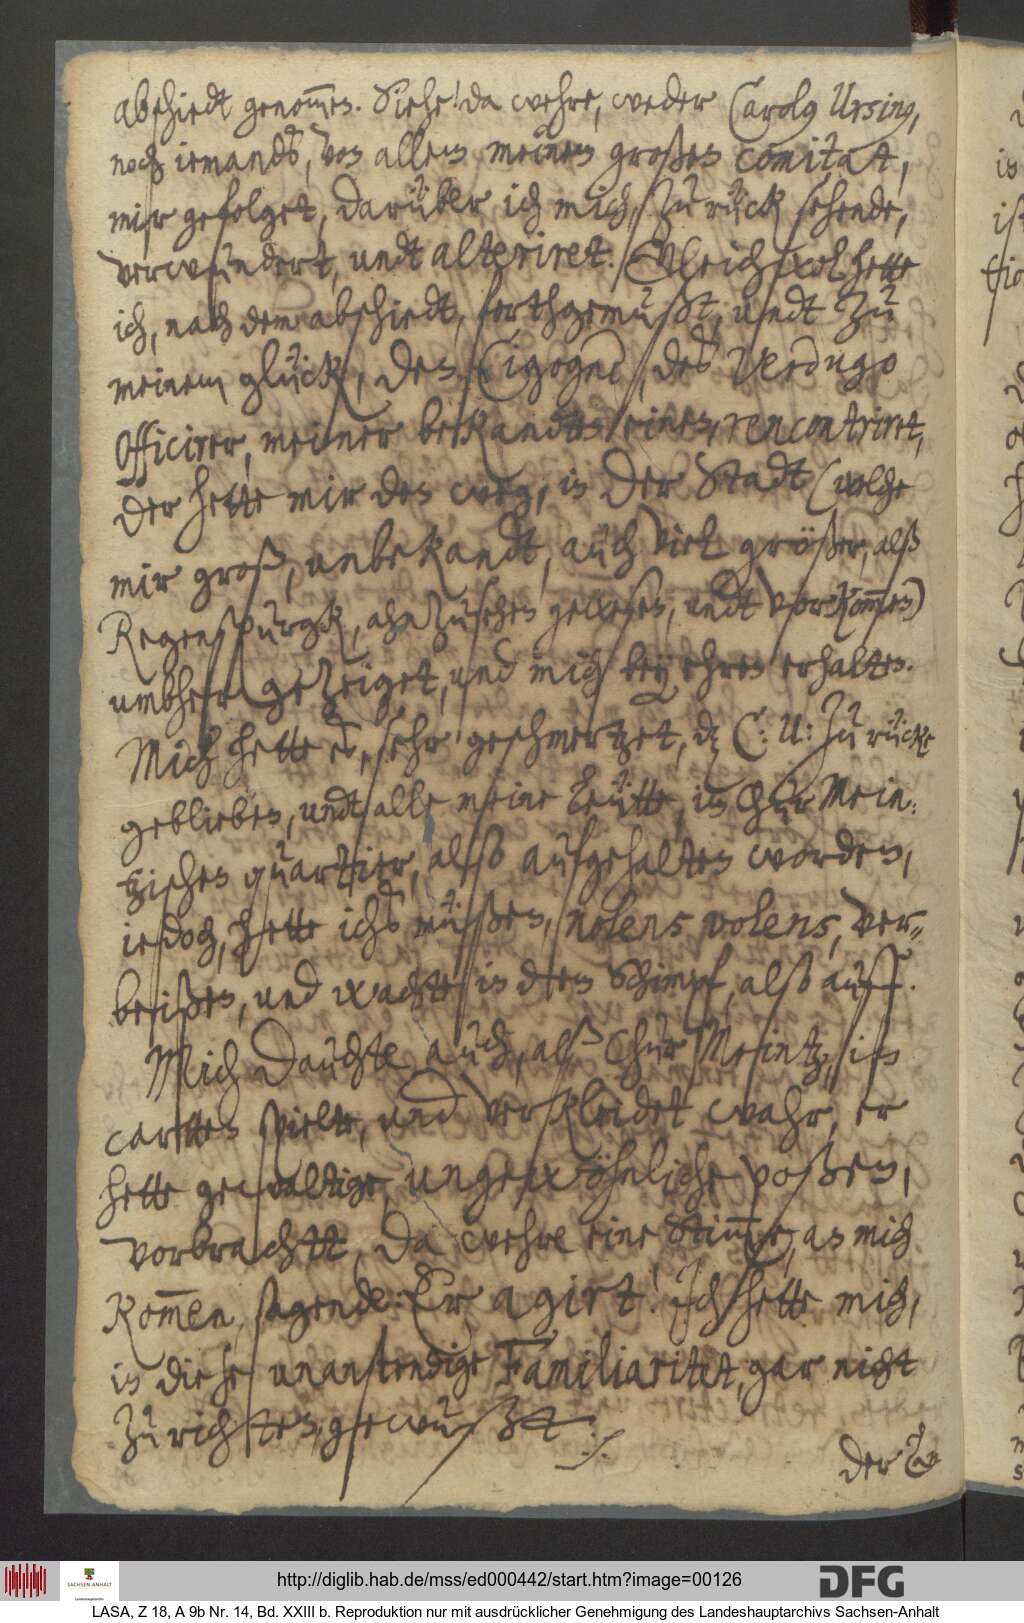 abschiedt genommen. Siehe! da wehre, weder Carolus Ursinus,
noch iemandts, von allem meinem großen comitat,
mir gefolget, darüber ich mich, zu rück sehende,
verwundert, undt alteriret. Gleichwol hette
ich, nach dem abschiedt, forthgemußt, undt zu
meinem glück, den Cigogne, des Verdugo
Officirer, meiner bekandten einen, rencontriret,
der hette mir den weg, in der Stadt (welche
mir groß, unbekandt, auch viel größer, alß
Regenspurgk, ahnzusehen gewesen, undt vorkommen)
umbher gezeiget, und mich bey ehren erhalten.
Mich hette es, sehr geschmertzet, dz C: U: zu rücke
geblieben, undt alle meine leütte, im Chur Mein:
tzischen quartier, also aufgehalten worden,
iedoch, hette ichs müßen, nolens volens, ver„
beißen, und wachte in dem Schimpf, also auff.
Mich dauchte auch, alß Chur Meintz, in
cartten spielte, und verkleidet wahr, er
hette gewaltige, ungewöhnliche poßen,
vorbrachtt, da wehre eine Stimme, an mich
kommen, sagende: Er agirt! Ich hette mich,
in diese unanstendige Familiaritet, gar nicht
zu richten, gewußtt ./.
der
http://diglib.hab.de/mss/ed000442/start.htm?image=00126
DFG
SACHSEN-ANHALT
LASA, Z 18, A 9b Nr. 14, Bd. XXIII b. Reproduktion nur mit ausdrücklicher Genehmigung des Landeshauptarchivs Sachsen-Anhalt